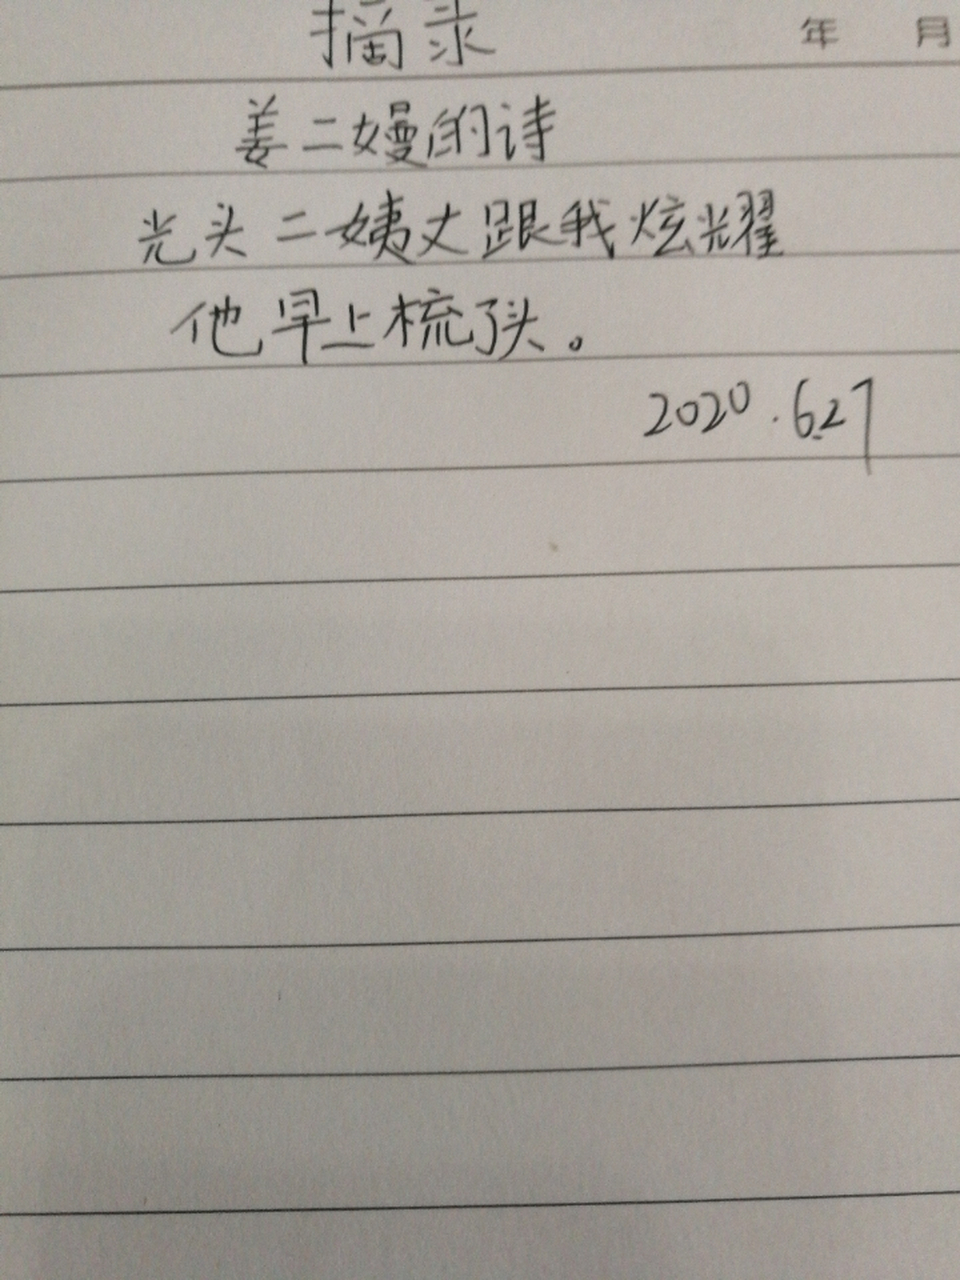 摘录 年 月
姜二嫚的诗
光头二姨丈跟我炫耀
他早上梳了头。
2020.6.27